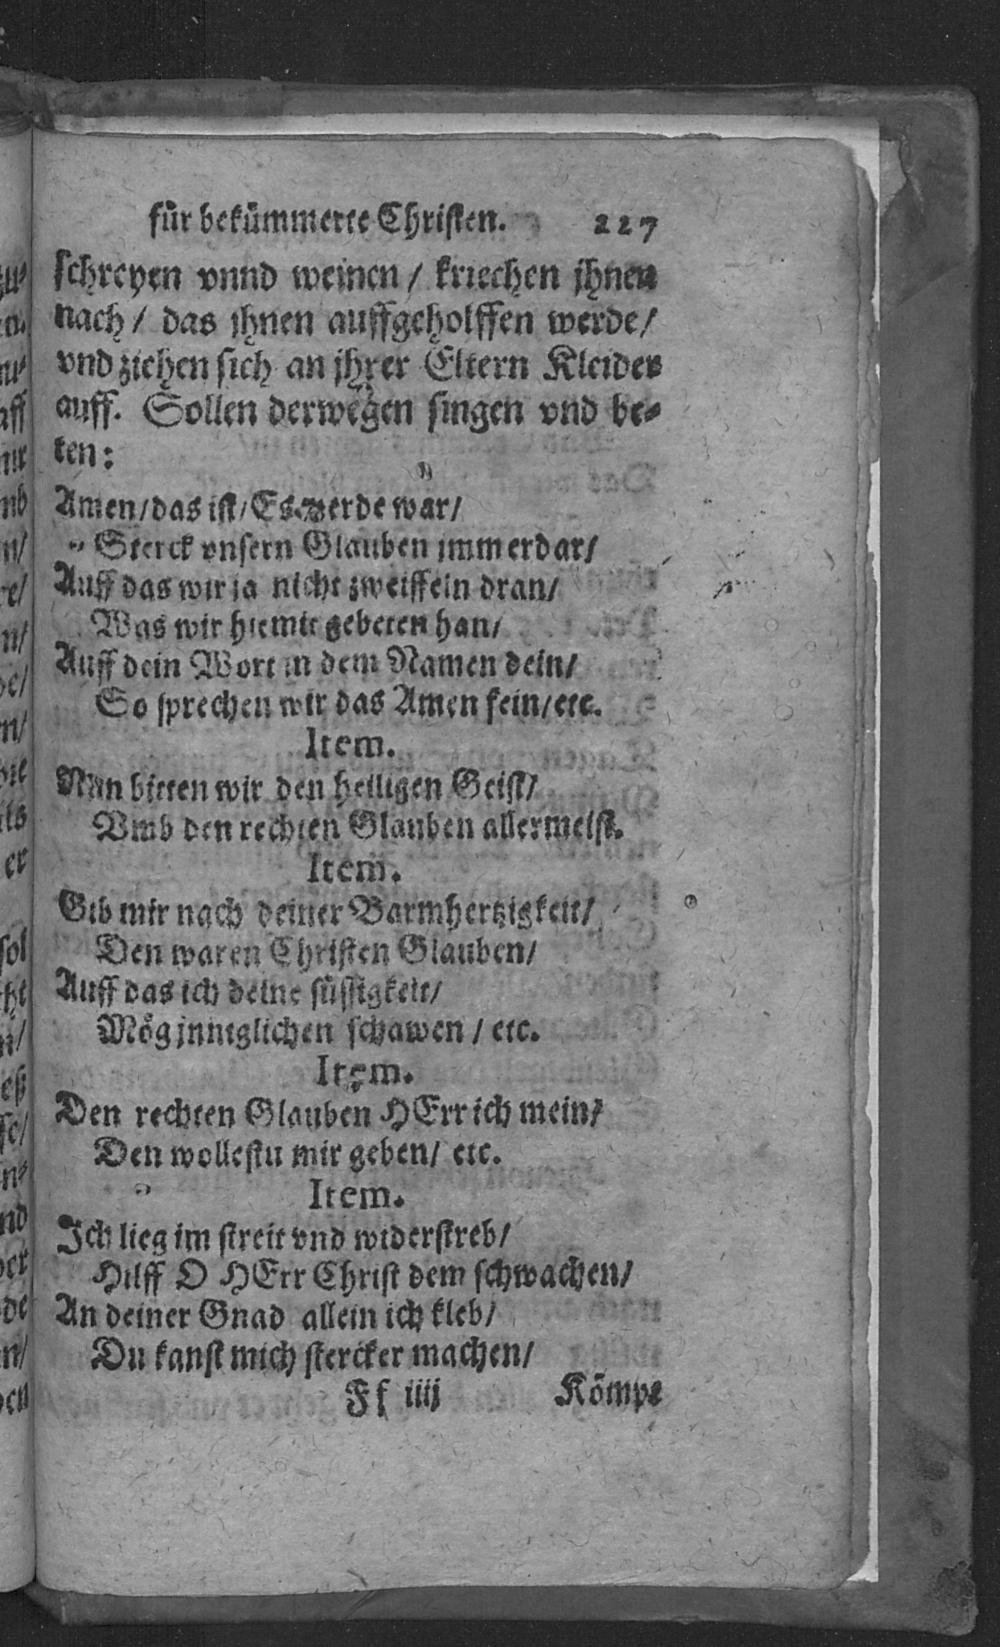 für bekümmerte Christen. 227
schreyen vnnd weinen / kriechen jhnen
nach / das jhnen auffgeholffen werde /
vnd ziehen sich an jhrer Eltern Kleider
auff. Sollen derwegen singen vnd be⸗
ten:
Amen / das ist / Es werde war /
Sterck vnsern Glauben jmmerdar /
Auff das wir ja nicht zweiffeln dran /
Was wir hiemit gebeten han /
Auff dein Wort in dem Namen dein /
So sprechen wir das Amen fein / etc.
Item.
Nun bitten wir den heiligen Geist /
Vmb den rechten Glauben allermeist.
Item.
Gib mir nach deiner Barmhertzigkeit /
Den waren Christen Glauben /
Auff das ich deine süssigkeit /
Mög jnniglichen schawen / etc.
Item.
Den rechten Glauben HErr ich mein /
Den wollestu mir geben / etc.
Item.
Ich lieg im streit vnd widerstreb /
Hilff O HErr Christ dem schwachen /
An deiner Gnad allein ich kleb /
Du kanst mich stercker machen /
Ff iiij Kömpt